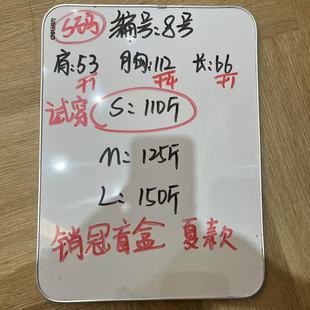 S码 编号:8号
肩:53 胸:112 长:66
+1 +4 +1
试穿 S:110斤
M:125斤
L:150斤
销冠盲盒 夏款